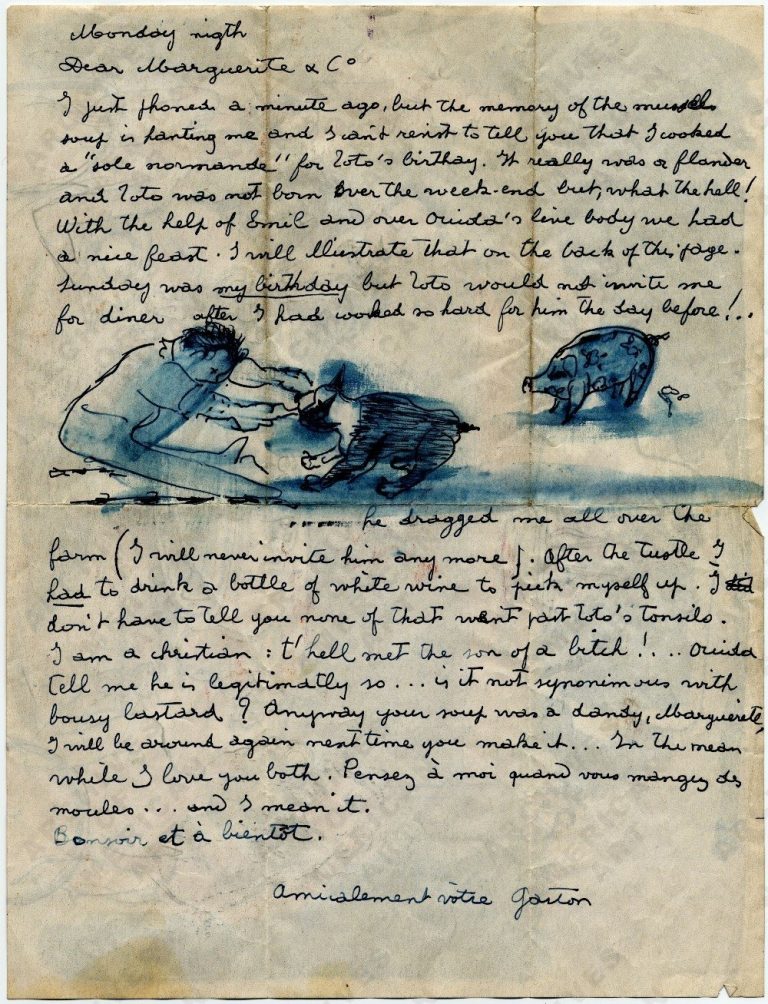 Monday nigth
Dear Marguerite & Co
I just phoned a minute ago, but the memory of the mussels
soup is hanting me and I can't resist to tell you that I cooked
a "sole normande" for Toto's birthay. It really was a flander
and Toto was not born over the week-end but, what the hell!
With the help of Emil and over Ouida's live body we had
a nice feast. I will Illustrate that on the back of this page.
Sunday was my birthday but Toto would not invite me
for diner after I had worked so hard for him the day before!..
he dragged me all over the
farm (I will never invite him any more). After the tustle I
had to drink a bottle of white wine to pick myself up. I
don't have to tell you none of that went past Toto's tonsils.
I am a christian : t'hell met the son of a bitch!... Ouida
tell me he is legitimatly so... is it not synonimous with
bousy bastard? Anyway your soup was a dandy, Marguerite,
I will be around again next time you make it... In the mean
while I love you both. Pensez à moi quand vous mangez des
moules... and I mean it.
Bonsoir et à bientôt.
Amicalement vôtre Gaston